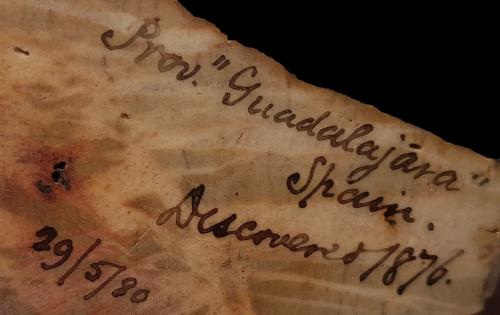 Prov. "Guadalajára"
Spain.
Discovered 1876.
29/5/80